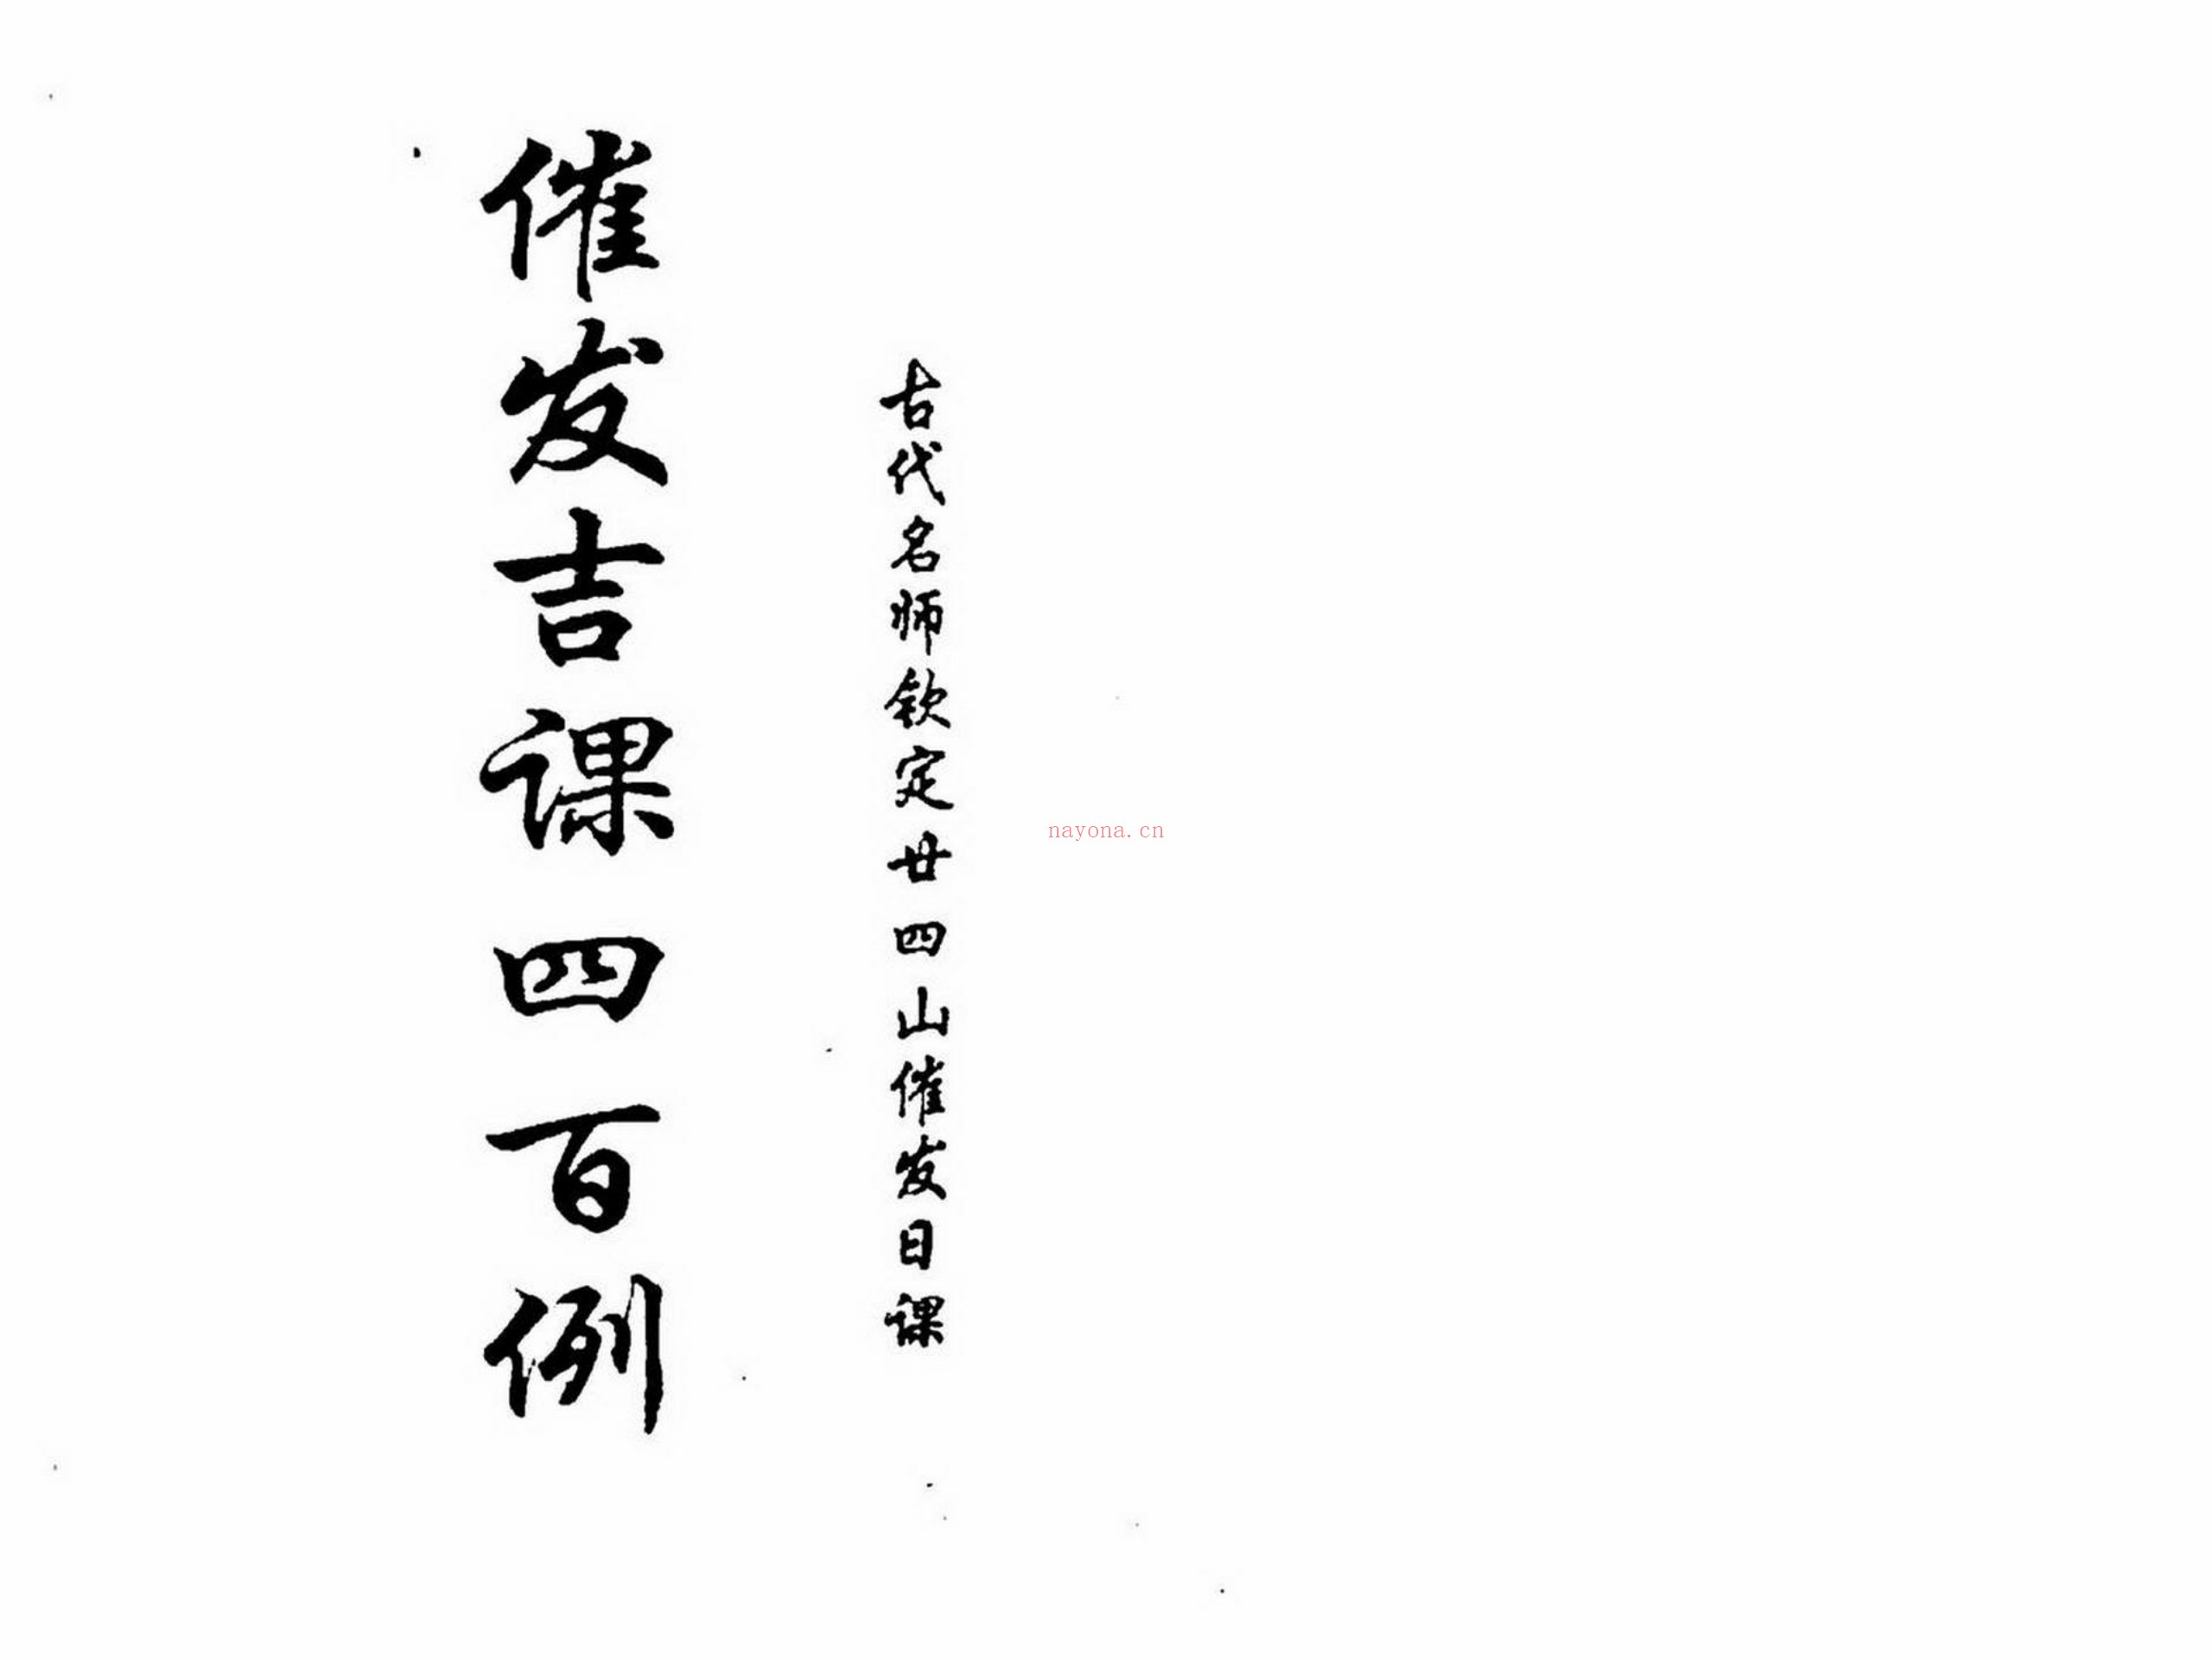 古代名师钦定廿四山催发日课
催发吉课四百例
nayona.cn